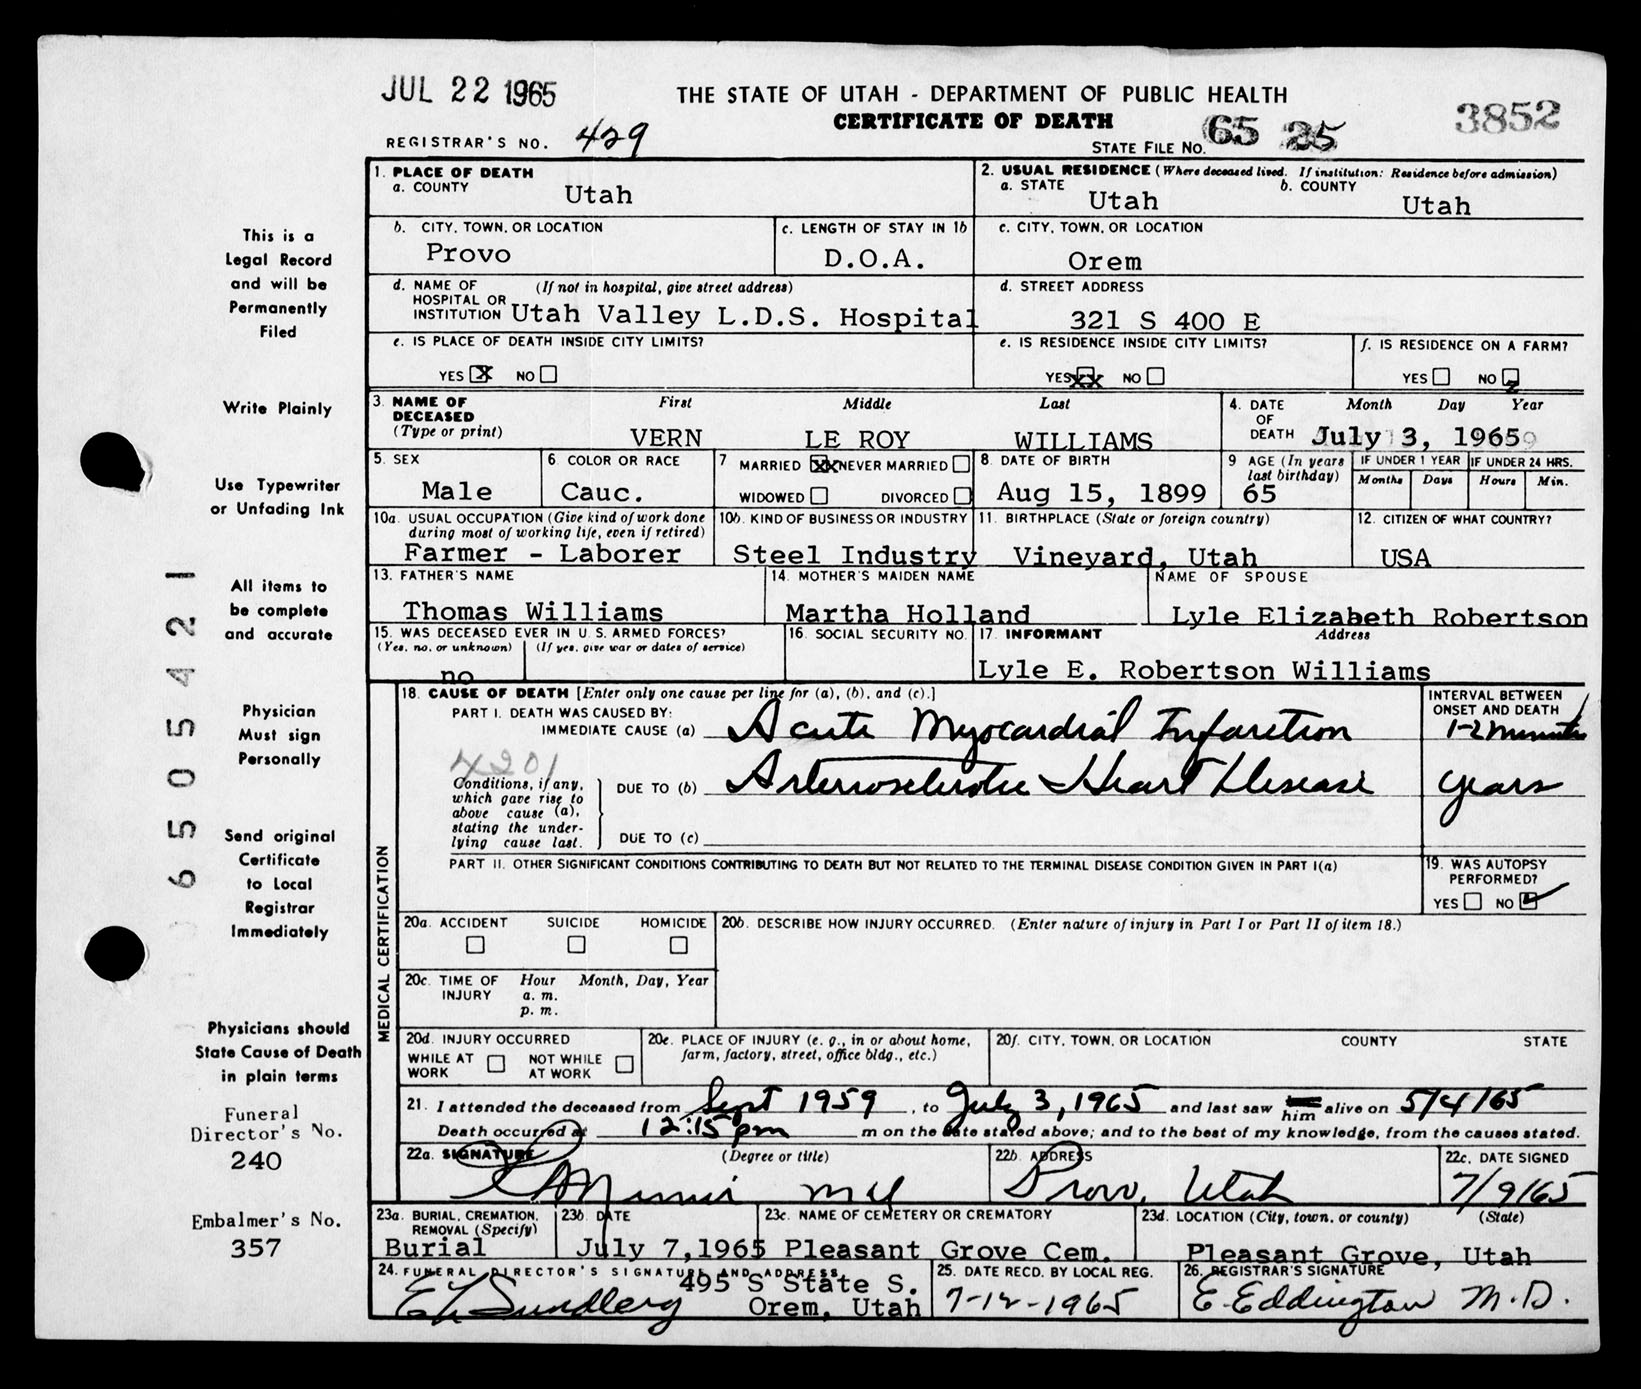 JUL 22 1965
THE STATE OF UTAH - DEPARTMENT OF PUBLIC HEALTH
CERTIFICATE OF DEATH
3852
REGISTRAR'S NO. 429
STATE FILE NO. 65 25
This is a
Legal Record
and will be
Permanently
Filed
Write Plainly
Use Typewriter
or Unfading Ink
All items to
be complete
and accurate
Physician
Must sign
Personally
Send original
Certificate
to Local
Registrar
Immediately
Physicians should
State Cause of Death
in plain terms
Funeral
Director's No.
240
Embalmer's No.
357
65 05421
1. PLACE OF DEATH
a. COUNTY
Utah
2. USUAL RESIDENCE (Where deceased lived. If institution: Residence before admission)
a. STATE
Utah
b. COUNTY
Utah
b. CITY, TOWN, OR LOCATION
Provo
c. LENGTH OF STAY IN 1b
D.O.A.
c. CITY, TOWN, OR LOCATION
Orem
d. NAME OF (If not in hospital, give street address)
HOSPITAL OR
INSTITUTION Utah Valley L.D.S. Hospital
d. STREET ADDRESS
321 S 400 E
e. IS PLACE OF DEATH INSIDE CITY LIMITS?
YES X NO
e. IS RESIDENCE INSIDE CITY LIMITS?
YES XX NO
f. IS RESIDENCE ON A FARM?
YES NO
3. NAME OF DECEASED
(Type or print)
First Middle Last
VERN LE ROY WILLIAMS
4. DATE OF DEATH
Month Day Year
July 3, 1965
5. SEX
Male
6. COLOR OR RACE
Cauc.
7 MARRIED XX NEVER MARRIED
WIDOWED DIVORCED
8. DATE OF BIRTH
Aug 15, 1899
9 AGE (In years last birthday)
65
IF UNDER 1 YEAR
Months Days
IF UNDER 24 HRS.
Hours Min.
10a. USUAL OCCUPATION (Give kind of work done
during most of working life, even if retired)
Farmer - Laborer
10b. KIND OF BUSINESS OR INDUSTRY
Steel Industry
11. BIRTHPLACE (State or foreign country)
Vineyard, Utah
12. CITIZEN OF WHAT COUNTRY?
USA
13. FATHER'S NAME
Thomas Williams
14. MOTHER'S MAIDEN NAME
Martha Holland
NAME OF SPOUSE
Lyle Elizabeth Robertson
15. WAS DECEASED EVER IN U.S. ARMED FORCES?
(Yes, no, or unknown) (If yes, give war or dates of service)
no
16. SOCIAL SECURITY NO.
17. INFORMANT Address
Lyle E. Robertson Williams
MEDICAL CERTIFICATION
18. CAUSE OF DEATH [Enter only one cause per line for (a), (b), and (c).]
PART I. DEATH WAS CAUSED BY:
IMMEDIATE CAUSE (a) Acute Myocardial Infarction
INTERVAL BETWEEN
ONSET AND DEATH
1-2 minutes
4201
Conditions, if any,
which gave rise to
above cause (a),
stating the under-
lying cause last.
DUE TO (b) Arteriosclerotic Heart Disease
years
DUE TO (c)
PART II. OTHER SIGNIFICANT CONDITIONS CONTRIBUTING TO DEATH BUT NOT RELATED TO THE TERMINAL DISEASE CONDITION GIVEN IN PART I(a)
19. WAS AUTOPSY
PERFORMED?
YES NO
20a. ACCIDENT SUICIDE HOMICIDE
20b. DESCRIBE HOW INJURY OCCURRED. (Enter nature of injury in Part I or Part II of item 18.)
20c. TIME OF INJURY
Hour Month, Day, Year
a. m.
p. m.
20d. INJURY OCCURRED
WHILE AT WORK NOT WHILE AT WORK
20e. PLACE OF INJURY (e. g., in or about home,
farm, factory, street, office bldg., etc.)
20f. CITY, TOWN, OR LOCATION COUNTY STATE
21. I attended the deceased from Sept 1959, to July 3, 1965 and last saw him alive on 5/4/65
Death occurred at 12:15 pm m on the date stated above; and to the best of my knowledge, from the causes stated.
22a. SIGNATURE (Degree or title)
22b. ADDRESS
Provo, Utah
22c. DATE SIGNED
7/9/65
23a. BURIAL, CREMATION,
REMOVAL (Specify)
Burial
23b. DATE
July 7, 1965
23c. NAME OF CEMETERY OR CREMATORY
Pleasant Grove Cem.
23d. LOCATION (City, town, or county) (State)
Pleasant Grove, Utah
24. FUNERAL DIRECTOR'S SIGNATURE AND ADDRESS
495 S State S.
Sundberg Orem, Utah
25. DATE RECD. BY LOCAL REG.
7-12-1965
26. REGISTRAR'S SIGNATURE
E. Eddington M.D.